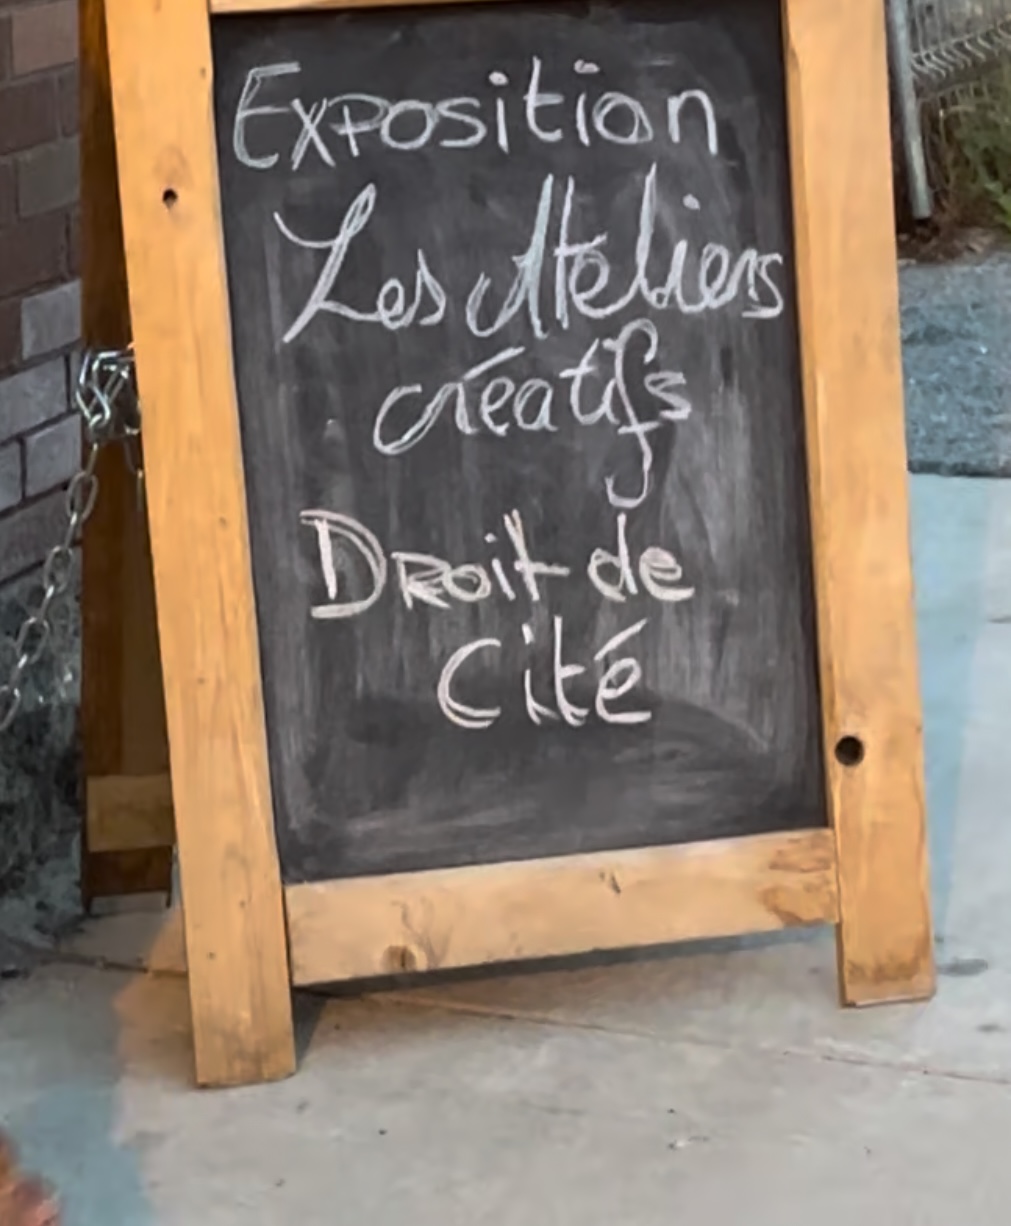 Exposition
Les Ateliers
créatifs
Droit de
Cité